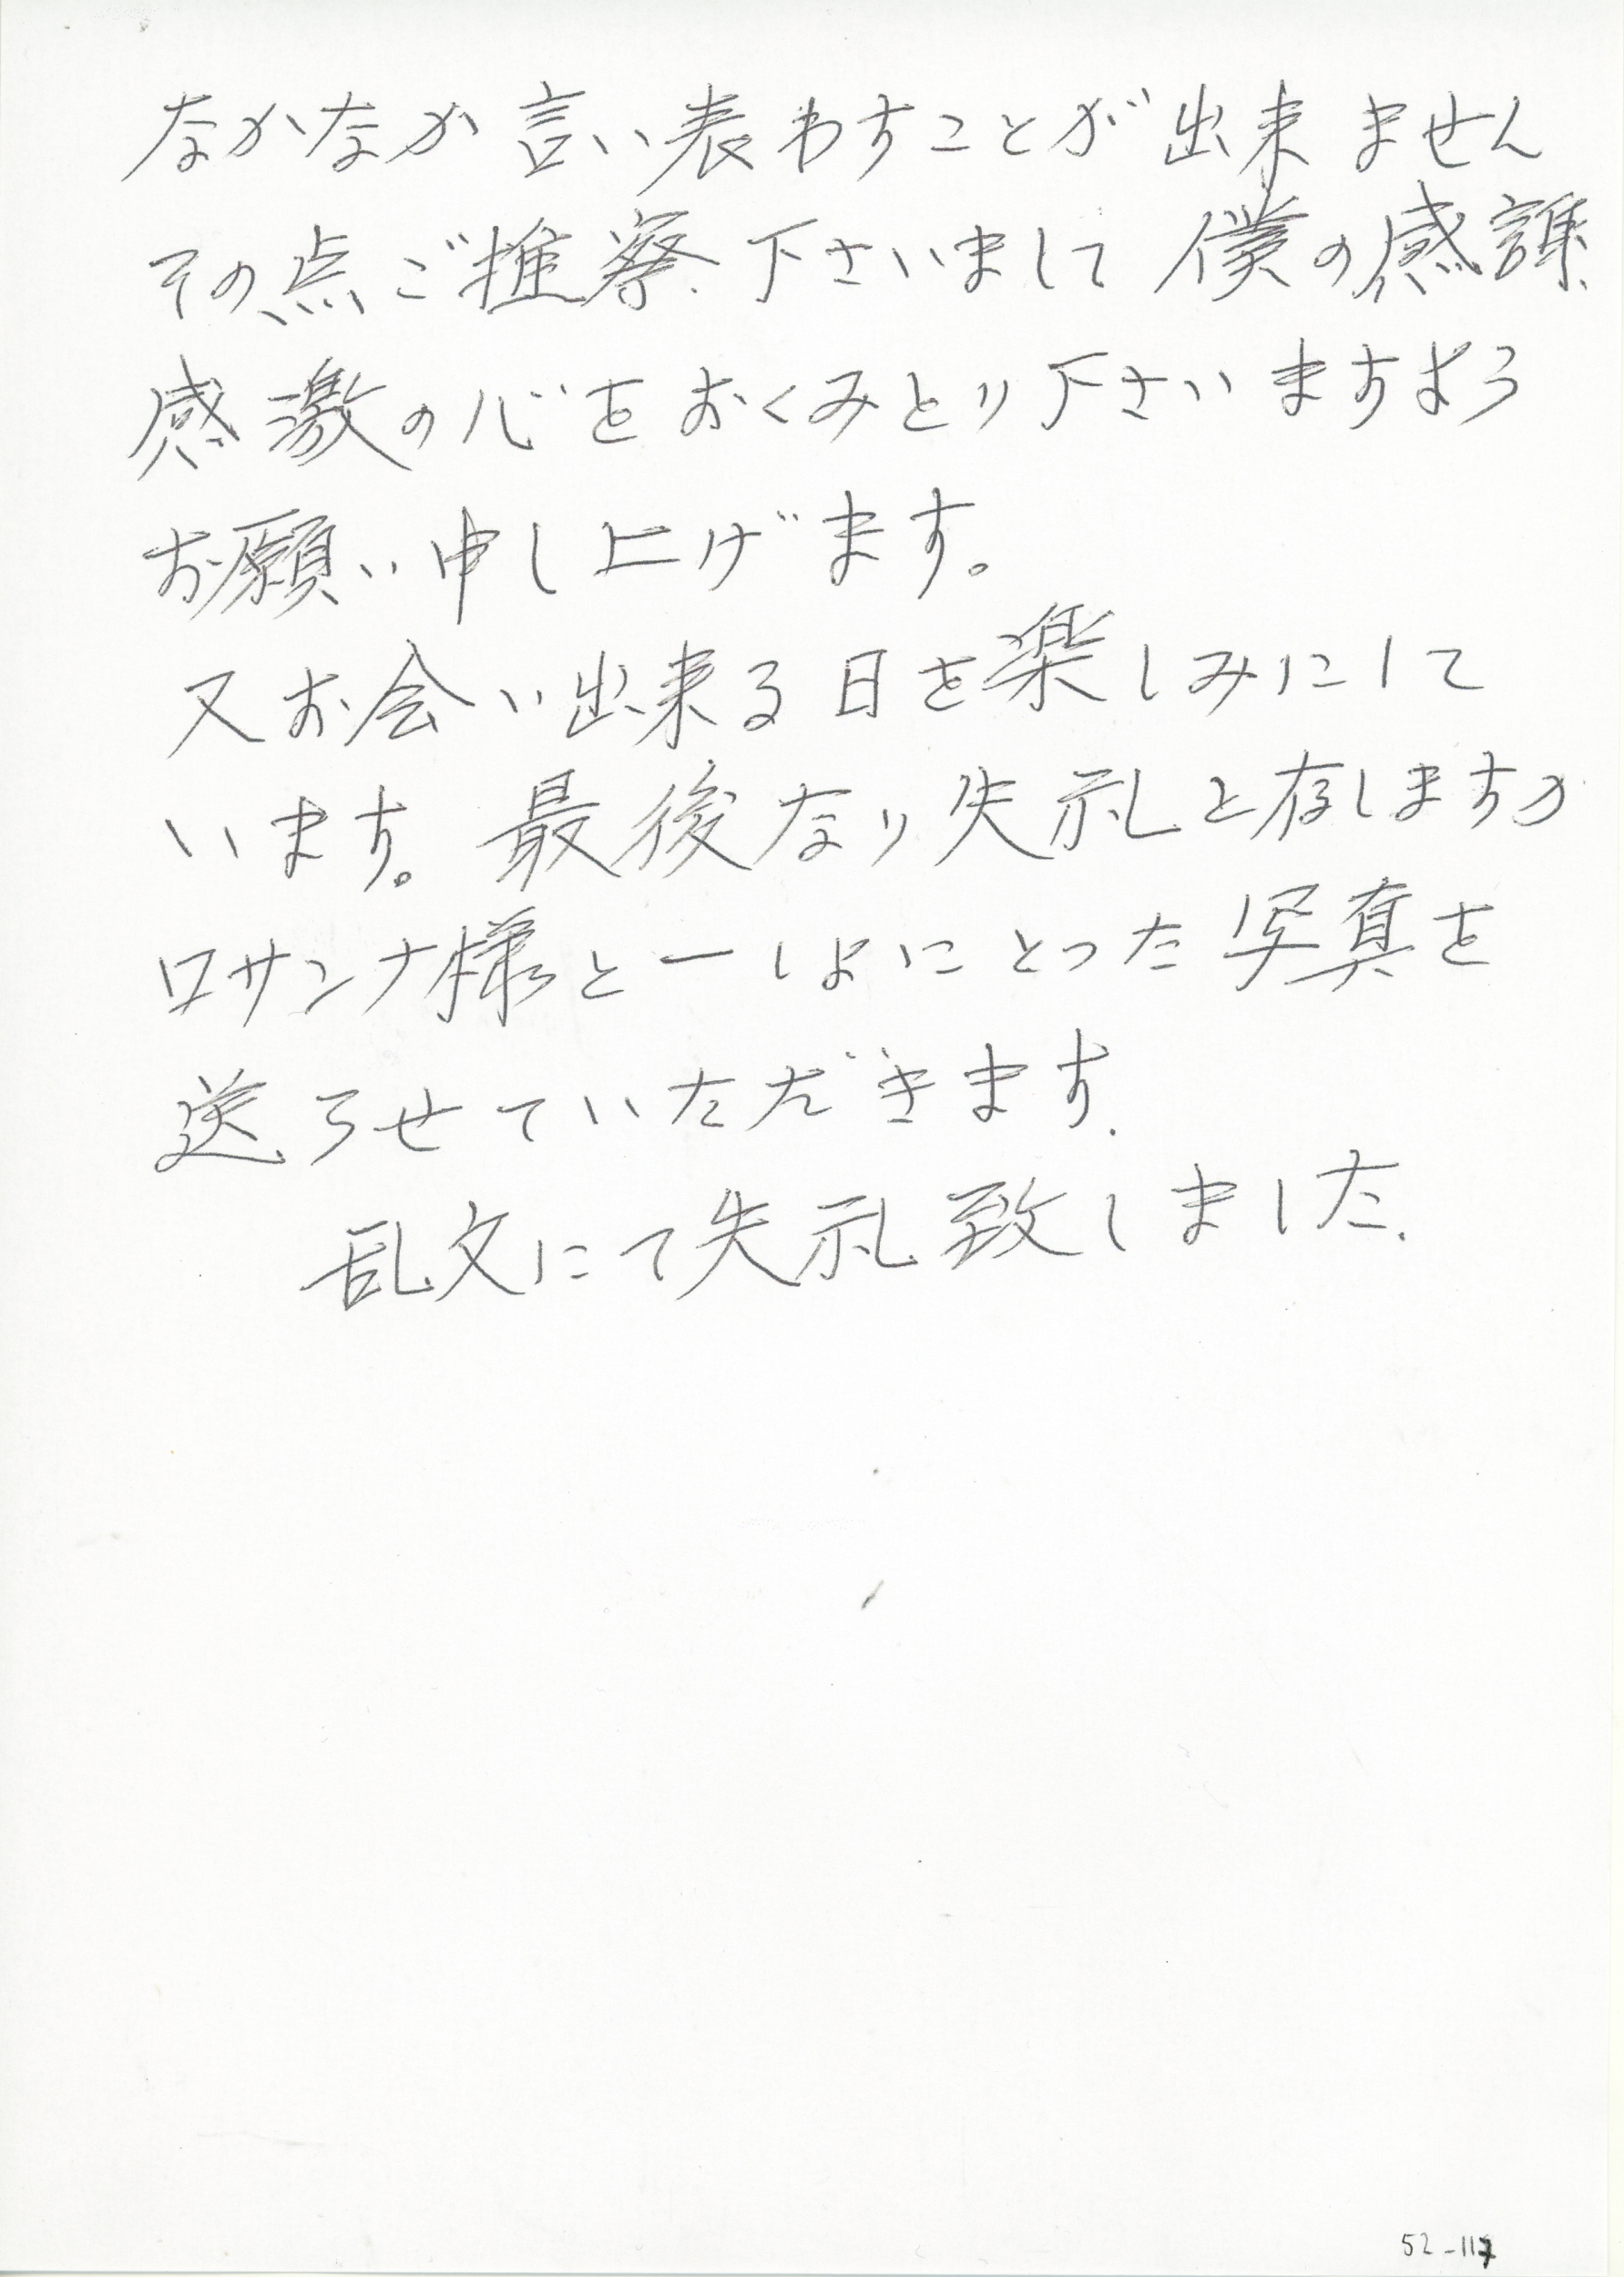 なかなか言い表わすことが出来ません
その点ご推察下さいまして 僕の感謝
感激の心をおくみとり下さいますよう
お願い申し上げます。
又お会い出来る日を楽しみにして
います。最後なり失礼と存しますが
ロサンナ様と一しょにとった写真を
送らせていただきます.
乱文にて失礼致しました.
52-117